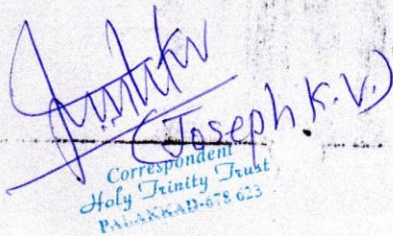 (Joseph K.V.)
Correspondent
Holy Trinity Trust
PALAKKAD-678 623